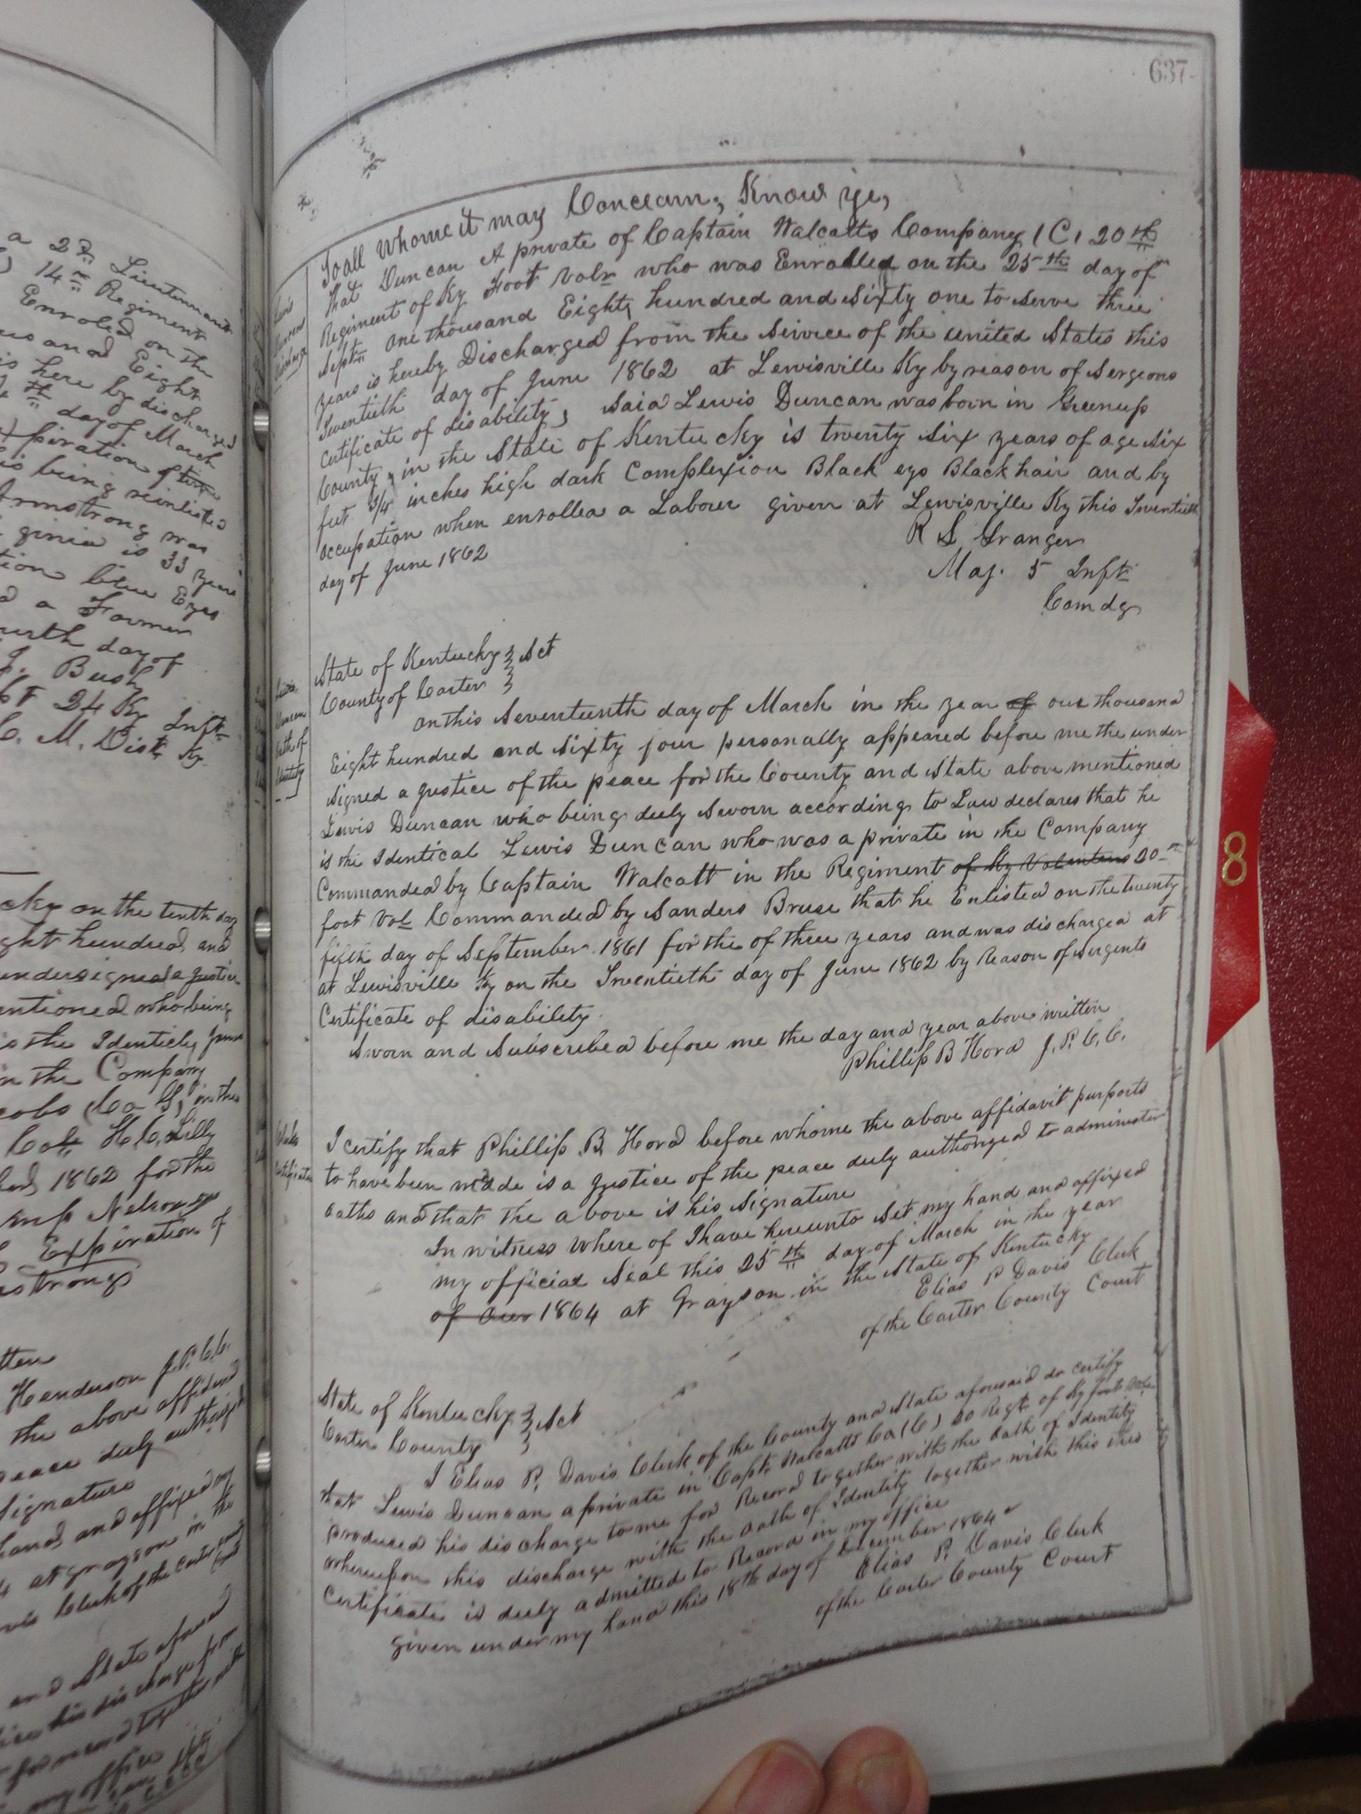 a 2d Lieutenant
14th Regiment
Enroled on the
Eight
is here by discharged
th day of March
piration of
his being reinlisted
Armstrong was
ginea is 33 years
tion blue Eyes
a Farmer
urth day of
J. Bush
24 Ky Infty
C. M. Dist Ky
cky on the tenth day
ght hundred and
undersigned a justice
entioned who being
is the Identicly
in the Company
cobs (Co G) in the
Colo H C Lilly
1862 for the
amp Nelson
Expiration of
strong
tten
Henderson J.P.C.C.
the above affidavid
peace duly
Signature
hand and affixed my
at grayson in the
Clerk of the Carter
and State afore
his discharge for
my office
637
To all whome it may Concearn, Know ye,
That Duncan A private of Captain Walcatts Company (C) 20th
Regiment of Ky Foot Volr who was Enrolled on the 25th day of
Septr one thousand Eight hundred and Sixty one to serve three
years is hereby Discharged from the Sivice of the united States this
Twentieth day of June 1862 at Lewisville Ky by reason of Sergeons
Certificate of disability, Said Lewis Duncan was born in Greenup
County, in the State of Kentucky is twenty Six years of age Six
feet 3/4 inches high dark Complexion Black eys Black hair and by
occupation when enrolled a Labour given at Lewisville Ky this Twentieth
day of June 1862
R S Granger
Maj. 5 Infty
Comdg
State of Kentucky } Sct
County of Carter }
Lewis
Duncan
Oath of
Identity
on this Seventeenth day of March in the year of one thousand
Eight hundred and Sixty four personally appeared before me the under
signed a justice of the peace for the County and State above mentioned
Lewis Duncan who being duly Sworn according to Law declares that he
is the Identical Lewis Duncan who was a private in the Company
Commanded by Captain Walcatt in the Regiment of Ky Volenteers 20th
foot Vol Commanded by Sanders Bruse that he Enlisted on the twenty
fifth day of September 1861 for the of three years and was discharged at
at Lewisville Ky on the Twentieth day of June 1862 by Reason of Sergents
Certificate of disability.
Sworn and Subscribed before me the day and year above written
Phillip B Hord J.P.C.C.
Clerks
Certificate
I certify that Phillip B Hord before whome the above affidavit purports
to have been made is a justice of the peace duly authorized to administer
oaths and that the above is his Signature
In witness where of I have hereunto Set my hand and affixed
my official Seal this 25th day of March in the year
of our 1864 at Grayson in the State of Kentucky
Elias P Davis Clerk
of the Carter County Court
State of Kentucky } Sct
Carter County }
I Elias P. Davis Clerk of the County and State aforesaid do certify
that Lewis Duncan a private in Capt. Walcatts Co (C) 20 Regt of Ky foot
produced his discharge to me for Record together with the Oath of Identity
whereupon this discharge with the oath of Identity together with this
Certificate is duly admitted to Record in my office
given under my hand this 18th day of December 1864
Elias P. Davis Clerk
of the Carter County Court
8